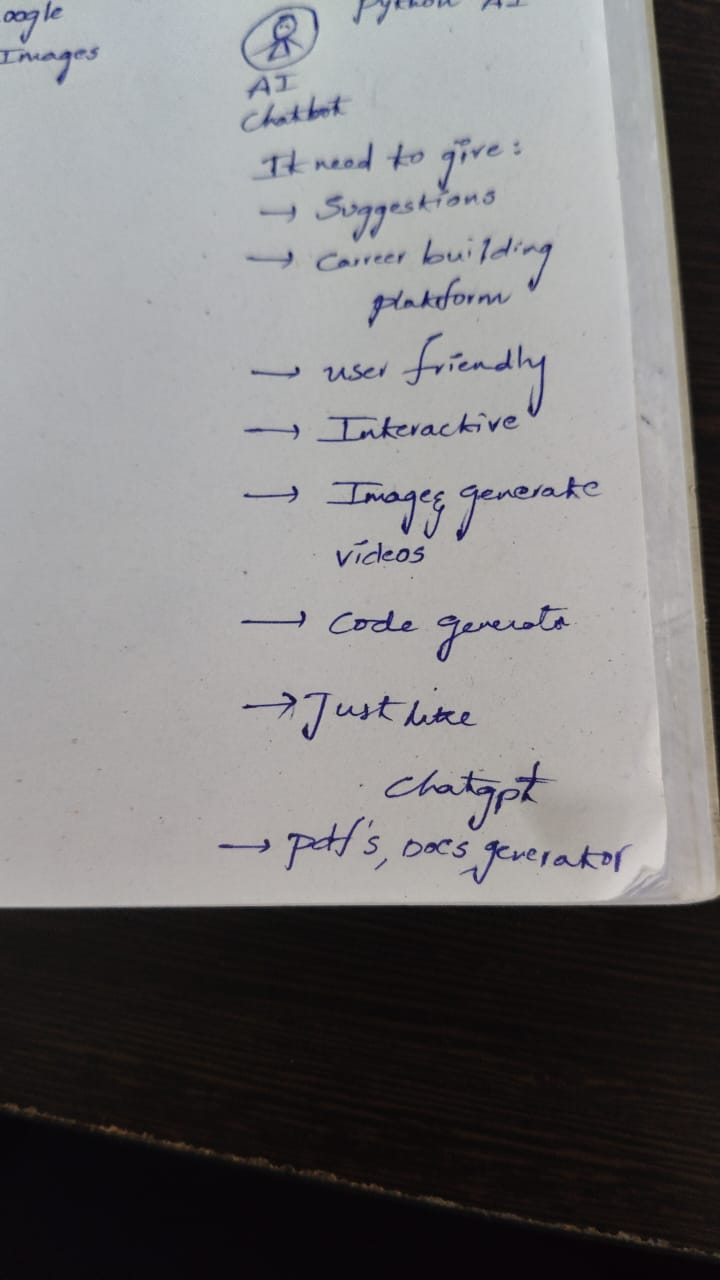 oogle
Images
Python AI
AI
Chatbot
It need to give:
→ Suggestions
→ Carreer building
platform
→ user friendly
→ Interactive
→ Images generate
videos
→ Code generato
→ Just like
Chatgpt
→ pdf's, Docs generator